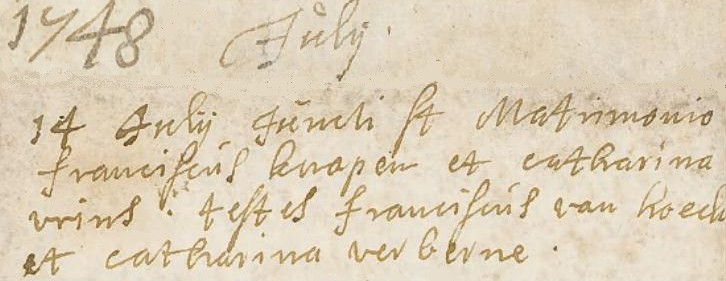 1748 July.
14 July Juncti st Matrimonio
franciscus knapen et catharina
vrins. testes franciscus van hoeck
et catharina verberne.